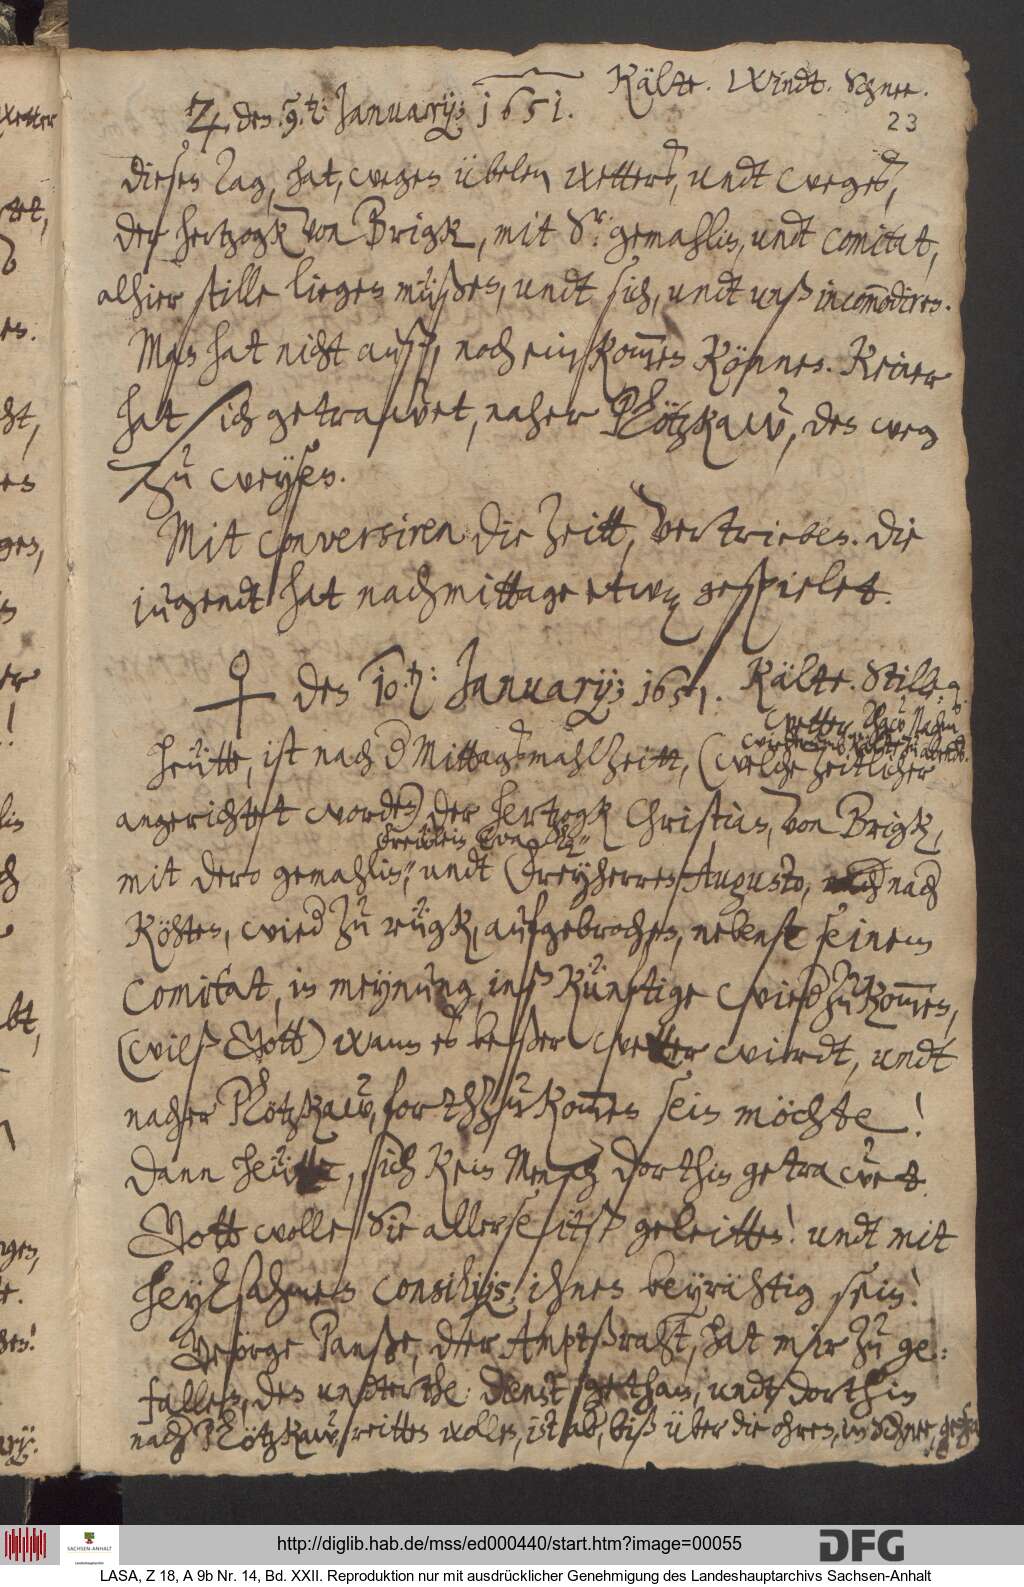 Kälte. Windt. Schnee.
♃ den 9.t: January; 1651.
23
diesen Tag, hat, wegen übelen wetters, undt weges,
der hertzogk von Brigk, mit Sr: gemahlin, undt comitat,
alhier stille liegen müßen, undt sich, undt unß incom̄odiren.
Man hat nicht auß, noch ein kom̄en können. Keiner
hat sich getrawet, naher Plötzkaw, den weg
zu weysen.
Mit conversiren die zeitt, vertrieben. die
jugendt hat nachmittage etwz gespielet.
♀ den 10.t: January; 1651. Kälte. Stille
wetter
heütte, ist nach d Mittagsmahlzeitt, (welche zeitlicher
angerichtet worden) der hertzogk Christian, von Brigk,
Freẅlein
mit dero gemahlin, undt Freyherren Augusto, nach
Köhten, wied zu rügk, aufgebrochen, nebenst seinem
Comitat, in meynung, inß künftige wied zu kom̄en,
(wilß Gott) wann es beßer wetter wirdt, undt
naher Plötzkaw, forth zu kom̄en sein möchte!
dann heütte, sich kein Mensch dorthin getrawet.
Gott wolle Sie allerseitß geleitten! undt mit
heylsahmen consilijs, ihnen beyrähtig sein!
George Panße, der Amptßraht, hat mir zu ge-
fallen, den undterthe: dienst gethan, undt dorthin
nach Plötzkaw, reitten wollen, ist ab, biß über die ohren, in Schnee,
http://diglib.hab.de/mss/ed000440/start.htm?image=00055
SACHSEN-ANHALT
DFG
LASA, Z 18, A 9b Nr. 14, Bd. XXII. Reproduktion nur mit ausdrücklicher Genehmigung des Landeshauptarchivs Sachsen-Anhalt